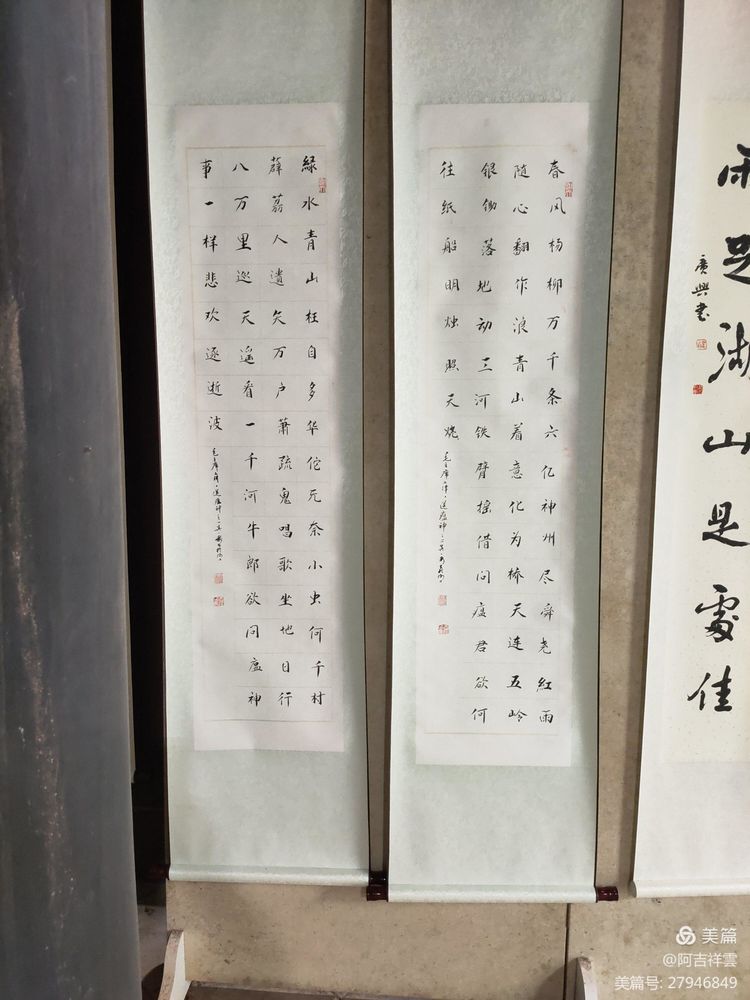 雨足湖山是處佳
廣興書
春风杨柳万千条六亿神州尽舜尧红雨
随心翻作浪青山着意化为桥天连五岭
银锄落地动三河铁臂摇借问瘟君欲何
往纸船明烛照天烧
毛主席律诗送瘟神之二
綠水青山枉自多华佗无奈小虫何千村
薜荔人遗矢万户萧疏鬼唱歌坐地日行
八万里巡天遥看一千河牛郎欲问瘟神
事一样悲欢逐逝波
毛主席律诗送瘟神之一
美篇
@阿吉祥雲
美篇号: 27946849